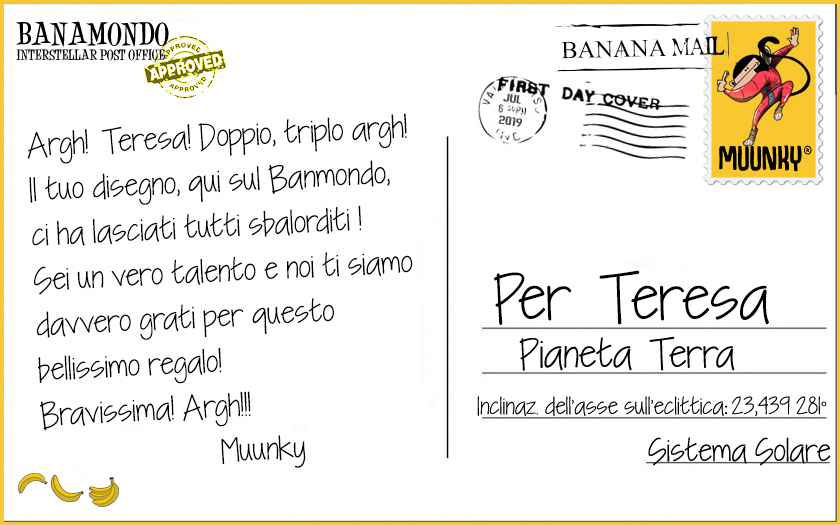 BANAMONDO
INTERSTELLAR POST OFFICE
APPROVED
APPROVED
APPROVED
BANANA MAIL
FIRST DAY COVER
JUL
6 PM
2019
MUUNKY®
Argh! Teresa! Doppio, triplo argh!
Il tuo disegno, qui sul Banmondo,
ci ha lasciati tutti sbalorditi !
Sei un vero talento e noi ti siamo
davvero grati per questo
bellissimo regalo!
Bravissima! Argh!!!
Muunky
Per Teresa
Pianeta Terra
Inclinaz. dell'asse sull'eclittica: 23,439 281°
Sistema Solare